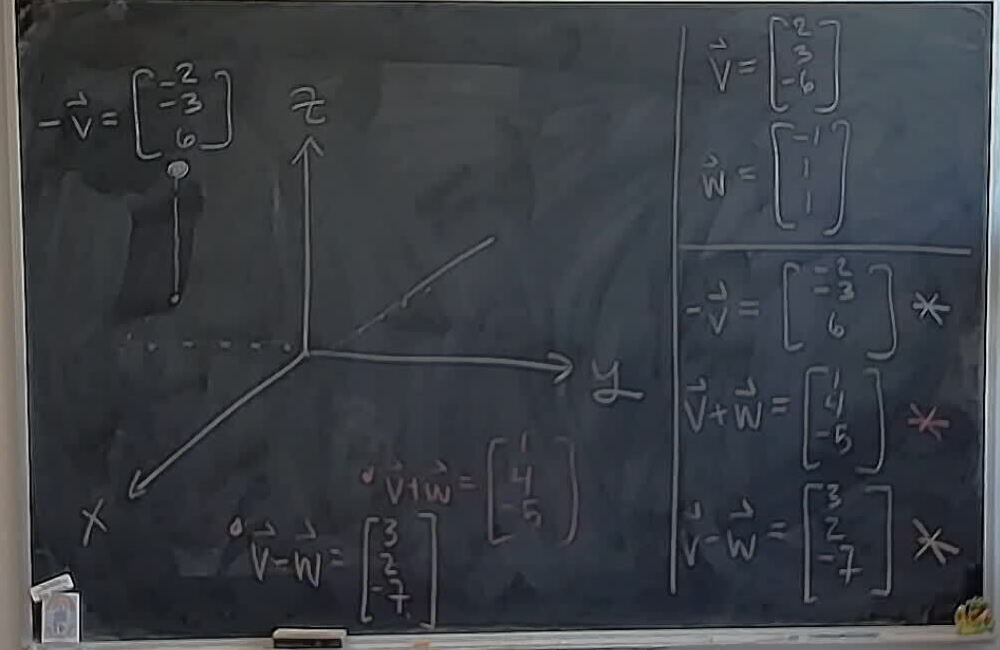 -v⃗ = [-2
-3
6]
z
y
x
v⃗+w⃗ = [1
4
-5]
v⃗-w⃗ = [3
2
-7]
v⃗ = [2
3
-6]
w⃗ = [-1
1
1]
-v⃗ = [-2
-3
6] *
v⃗+w⃗ = [1
4
-5] *
v⃗-w⃗ = [3
2
-7] *